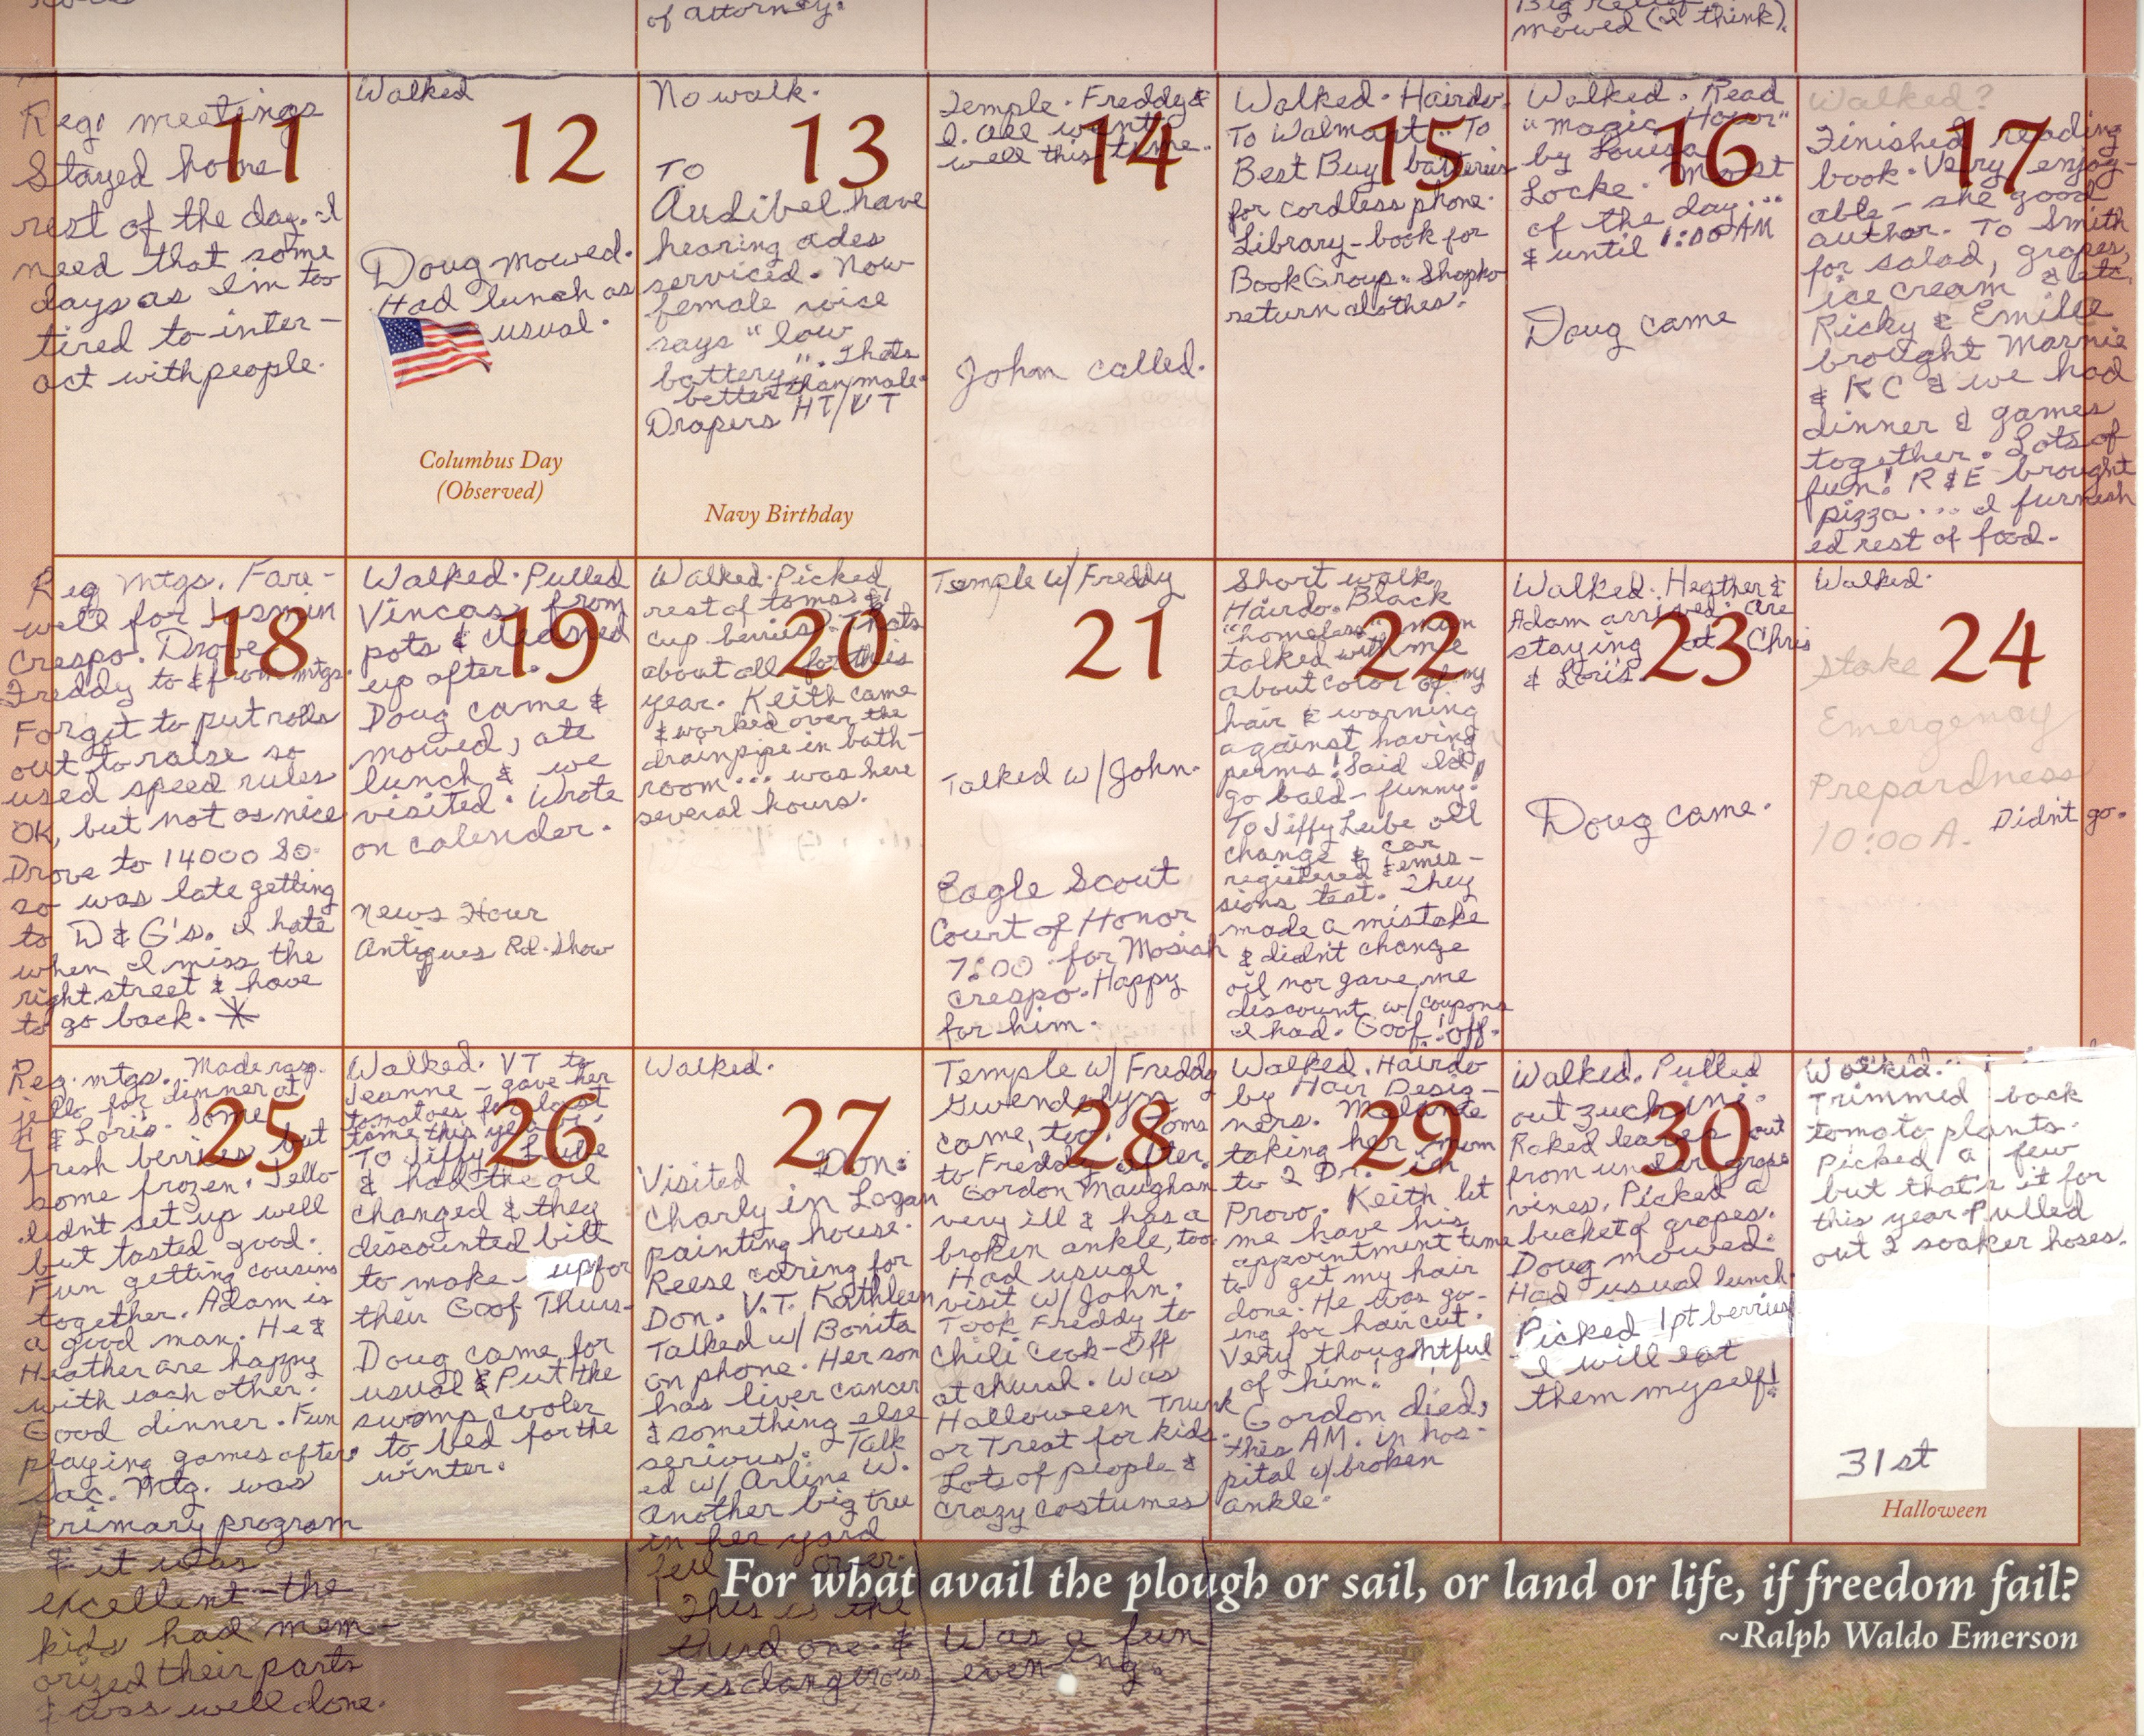 of attorney.
mowed (I think).
11
Reg. meetings
Stayed home
rest of the day. I
need that some
days as I'm too
tired to inter-
act with people.
12
Walked
Doug mowed.
Had lunch as
usual.
Columbus Day
(Observed)
13
No walk.
To
Audibel have
hearing ades
serviced. Now
female voice
says "low
battery". Thats
better than male.
Drapers HT/VT
Navy Birthday
14
Temple. Freddy &
I. All went
well this time.
John called.
15
Walked. Hairdo.
To Walmart. To
Best Buy batteries
for cordless phone.
Library-book for
Book Group. Shopko
return clothes.
16
Walked. Read
"Magic Honor"
by Louisa
Locke. Most
of the day...
& until 1:00 AM
Doug came
17
Walked?
Finished reading
book. Very enjoy-
able - she good
author. To Smith
for salad, grapes,
ice cream & etc.
Ricky & Emilee
brought Marnie
& KC & we had
dinner & games
together. Lots of
fun! R&E brought
pizza... I furnish
ed rest of food.
18
Reg Mtgs. Fare-
well for Jasmin
Crespo. Drove
Freddy to & from mtgs.
Forgot to put rolls
out to raise so
used speed rules
OK, but not as nice
Drove to 14000 So.
so was late getting
to D & G's. I hate
when I miss the
right street & have
to go back. *
19
Walked. Pulled
Vincas from
pots & cleaned
up after.
Doug came &
mowed, ate
lunch & we
visited. Wrote
on calender.
News Hour
Antiques Rd. Show
20
Walked. Picked
rest of toms. &
cup berries. Thats
about all for this
year. Keith came
& worked over the
drainpipe in bath-
room... was here
several hours.
21
Temple w/ Freddy
Talked w/ John.
Eagle Scout
Court of Honor
7:00 for Mosiah
Crespo. Happy
for him.
22
Short walk
Hairdo. Black
"homeless" man
talked with me
about color of my
hair & warning
against having
perms! Said I'd
go bald - funny!
To Jiffy Lube oil
change & car
registered & emis-
sions test. They
made a mistake
& didn't change
oil nor gave me
discount w/coupons
I had. Goof! off.
23
Walked. Heather &
Adam arrived. Are
staying at Chris
& Lori's.
Doug came.
24
Walked.
Stake
Emergency
Prepardness
10:00 A.
Didn't go.
25
Reg. mtgs. Made rasp.
jello for dinner at
C & Loris. Some
fresh berries but
some frozen. Jello
didn't set up well
but tasted good.
Fun getting cousins
together. Adam is
a good man. He &
Heather are happy
with each other.
Good dinner. Fun
playing games after.
Sac. Mtg. was
Primary program
& it was
excellent - the
kids had mem-
orized their parts
& was well done.
26
Walked. VT to
Jeanne - gave her
tomatoes for last
time this year.
To Jiffy Lube
& had the oil
changed & they
discounted bill
to make up for
their Goof Thurs-
Doug came for
usual & Put the
swamp cooler
to bed for the
winter.
27
Walked.
Visited Don.
Charly in Logan
painting house.
Reese caring for
Don. V.T. Kathleen
Talked w/ Bonita
on phone. Her son
has liver cancer
& something else
serious. Talk
ed w/ Arline W.
Another big tree
in her yard
fell over.
This is the
third one. &
it is dangerous
28
Temple w/ Freddy
Gwendolyn
came, too. Toms
to Freddy after.
Gordon Maughan
very ill & has a
broken ankle, too.
Had usual
visit w/ John.
Took Freddy to
Chili Cook-Off
at church. Was
Halloween Trunk
or Treat for kids.
Lots of people &
crazy costumes
Was a fun
evening.
29
Walked. Hairdo
by Hair Desig-
ners. Melinda
taking her mom
to 2 Dr. in
Provo. Keith let
me have his
appointment time
to get my hair
done. He was go-
ing for haircut.
Very thoughtful
of him!
Gordon died,
this AM. in hos-
pital w/ broken
ankle.
30
Walked. Pulled
out zuchini.
Raked leaves out
from under grape
vines. Picked a
bucket of grapes.
Doug mowed.
Had usual lunch.
Picked 1 pt berries
I will eat
them myself!
Walked.
Trimmed back
tomato plants.
Picked a few
but that's it for
this year. Pulled
out 2 soaker hoses.
31st
Halloween
For what avail the plough or sail, or land or life, if freedom fail?
~Ralph Waldo Emerson